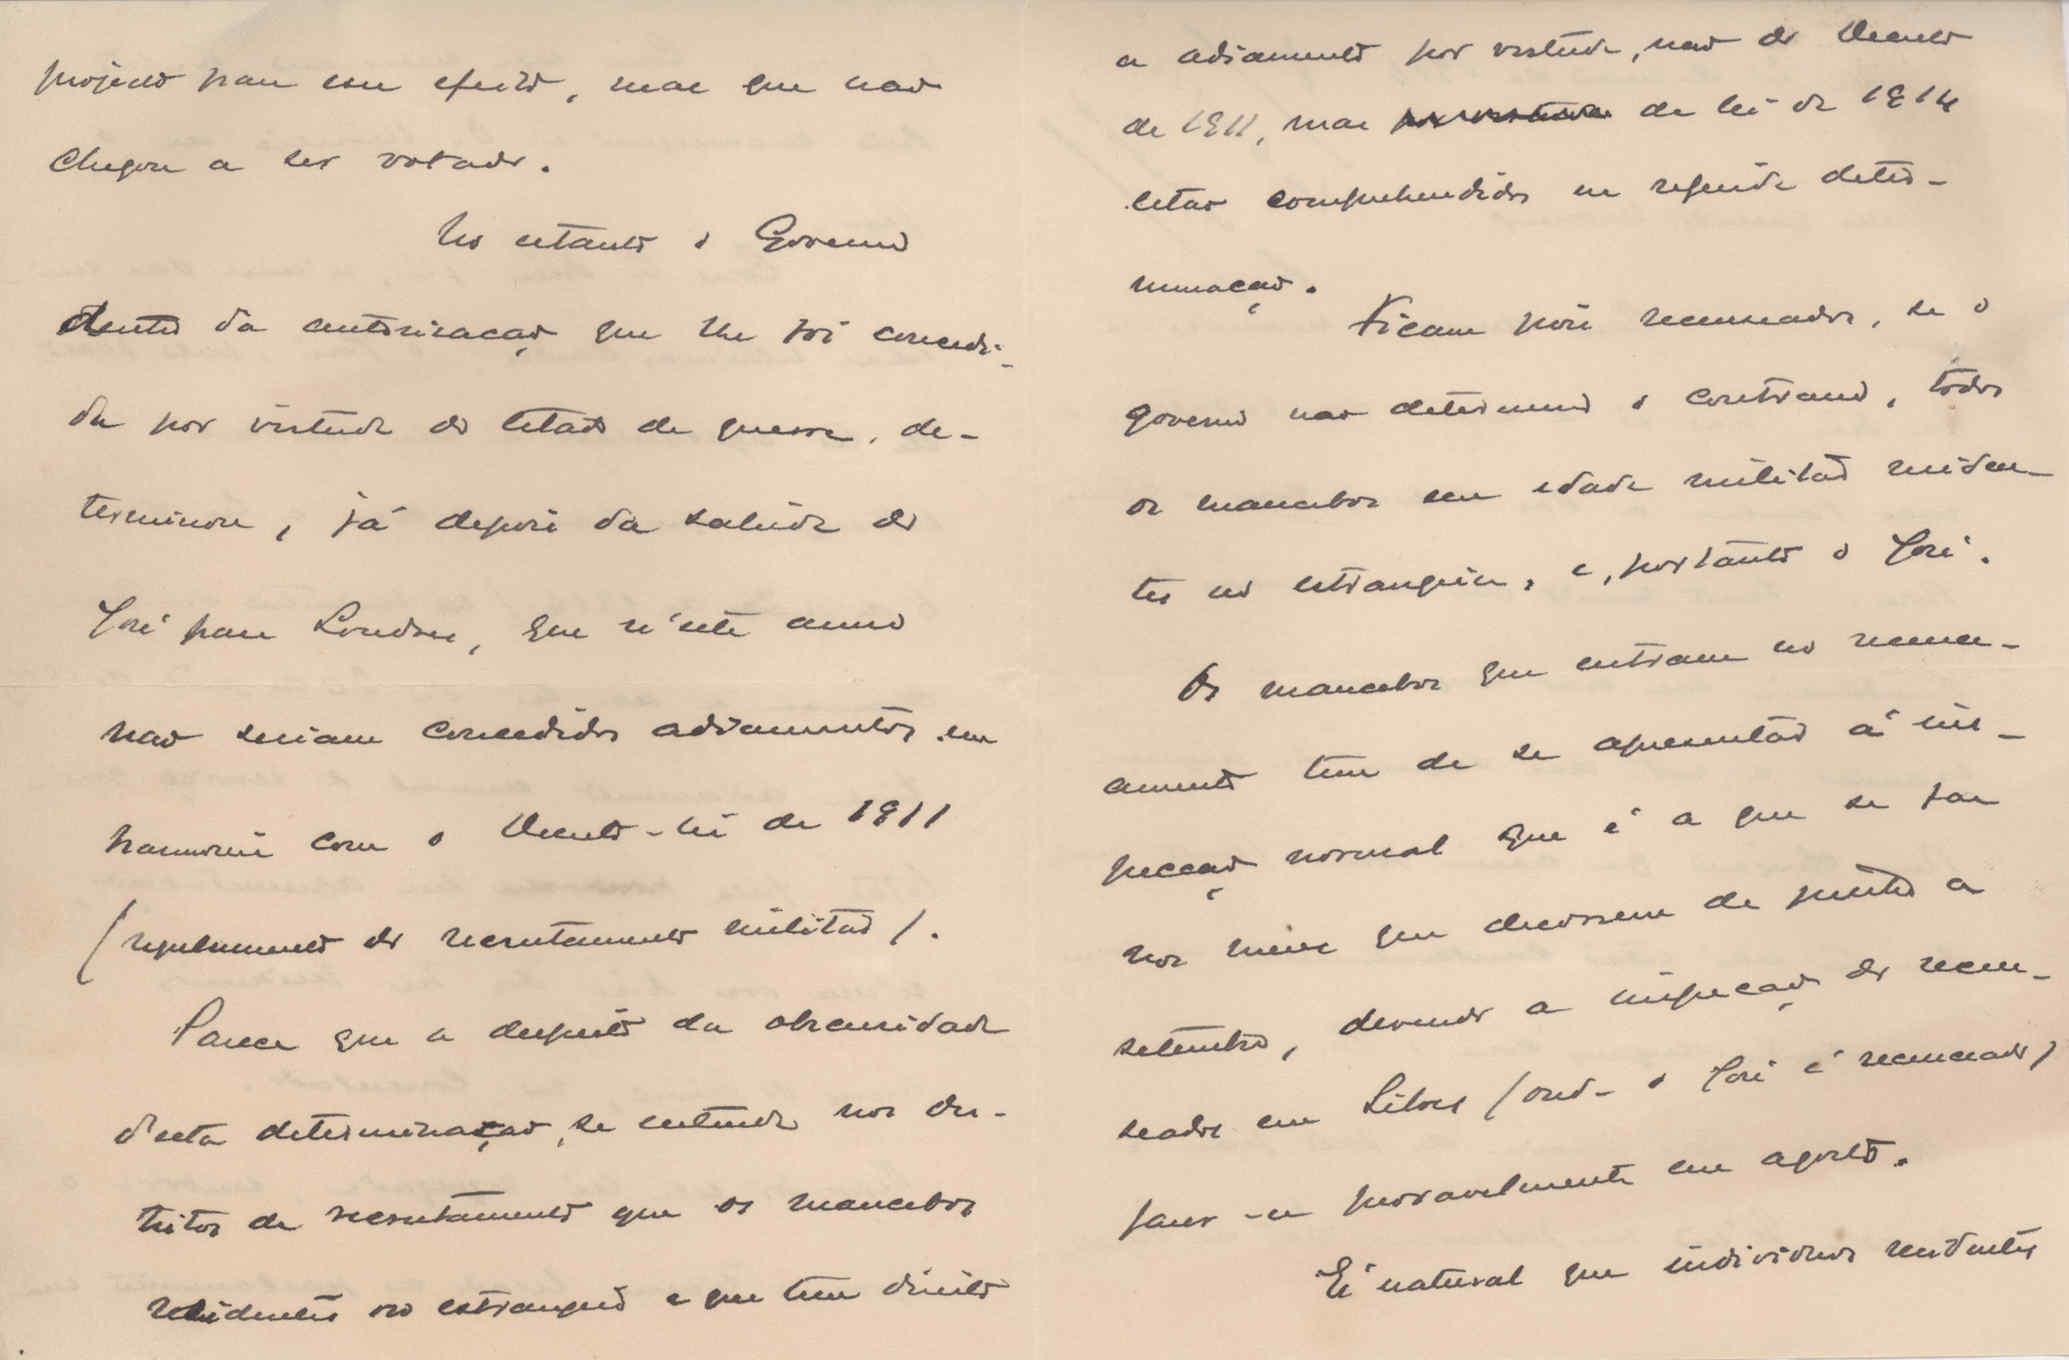 projecto para esse efeito, mas que não
chegou a ser votado.
No entanto o Governo
dentro da autorisação que lhe foi concedi-
da por virtude do estado de guerra, de-
terminou, já depois da sahida do
José para Londres, que n'este anno
não seriam concedidos adiamentos em
harmonia com o Decreto-lei de 1911
(regulamento do recrutamento militar).
Parece que a despeito da obscuridade
d'esta determinação, se entende nos dis-
tritos de recrutamento que os mancebos
residentes no estrangeiro e que tem direito
a adiamento por virtude, não do Decreto
de 1911, mas por virtude da lei de 1914
estão comprehendidos na referida deter-
minação.
Ficam pois recenseados, se o
governo não determinar o contrario, todos
os mancebos em edade militar residen-
tes no estrangeiro, e, portanto o José.
Os mancebos que entram no recense-
amento tem de se apresentar á ins-
pecção normal que é a que se faz
nos meses que decorrem de junho a
setembro, devendo a inspecção dos recen-
seados em Silves (onde o José é recenseado)
fazer-se provavelmente em agosto.
É natural que individuos residentes